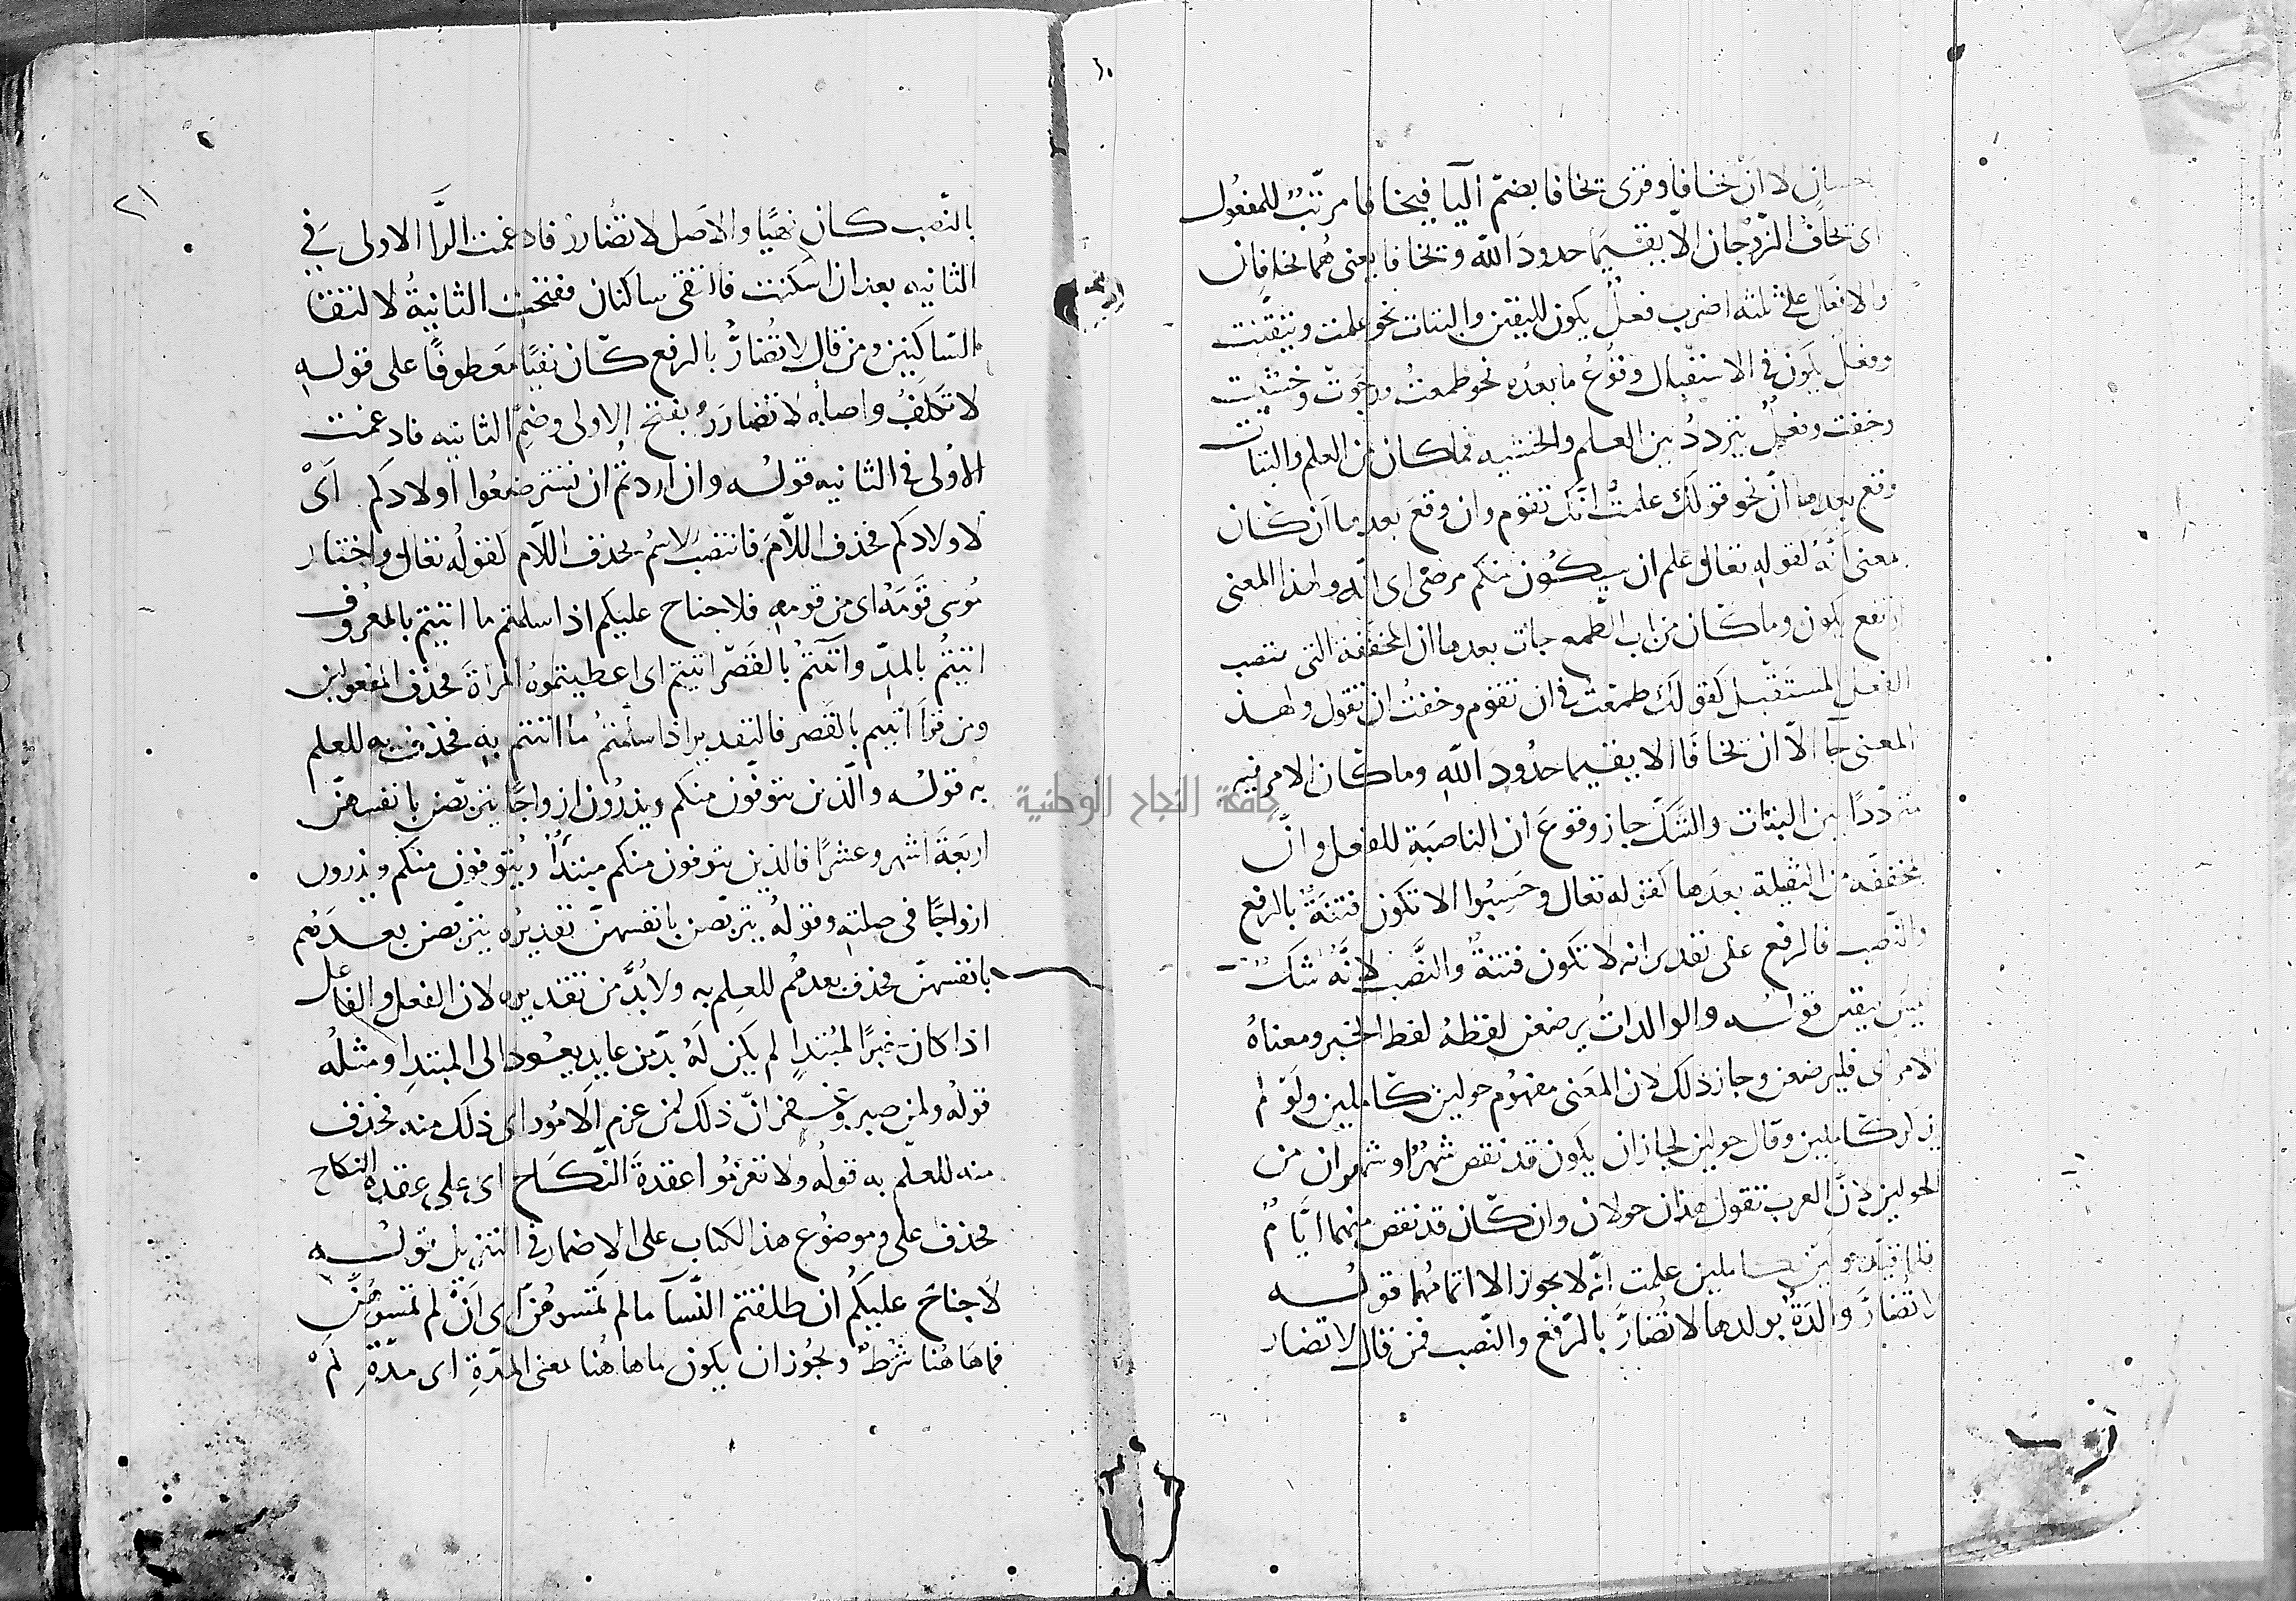 باحسان لا ان يخافا وقرئ يخافا بضم اليا فيخافا مرتب للمفعول
اى يخاف الزوجان الا يقيما حدود الله و يخافا يعنى هما يخافان
والافعال على ثلثه اضرب فعل يكون لليقين والثبات نحو علمت وتيقنت
وفعل يكون فى الاستقبال وقوع ما بعده نحو طمعت ورجوت وخشيت
وخفت وفعل يتردد بين العلم والخشيه فما كان من العلم والثبات
وقع بعدها ان نحو قولك علمت انك تقوم وان وقع بعدها ان كان
بمعنى انه لقوله تعالى علم ان سيكون منكم مرضى اى انه ولهذا المعنى
ارتفع يكون وما كان من باب الطمع جات بعدها ان المخففة التى تنصب
الفعل المستقبل كقولك طمعت فى ان تقوم وخفت ان تقول ولهذا
المعنى جآ الا ان يخافا الا يقيما حدود الله وما كان الامر فيه
مترددا بين الثبات والشك جاز وقوع ان الناصبة للفعل وان
المخففه من الثقيلة بعدها كقوله تعالى وحسبوا الا تكون فتنة بالرفع
والنصب فالرفع على تقدير انه لا تكون فتنة والنصب لانه شك
ليس بيقين قوله والوالدات يرضعن لفظه لفظ الخبر ومعناه
الامر اى فليرضعن وجاز ذلك لان المعنى مفهوم حولين كاملين ولو لم
يذكر كاملين وقال حولين لجاز ان يكون قد نقص شهر او شهران من
الحولين لان العرب تقول هذان حولان وان كان قد نقص منهما ايام
فلما قيل حولين كاملين علمت انه لا يجوز الا اتمامهما قوله
لا تضار والدة بولدها لا تضار بالرفع والنصب فمن قال لا تضار
٢١
بالنصب كان نهيا والاصل لا تضارر فادغمت الرا الاولى فى
الثانيه بعد ان اسكنت فالتقى ساكنان ففتحت الثانية لالتقا
الساكنين ومن قال لا تضار بالرفع كان نفيا معطوفا على قوله
لا تكلف واصله لا تضارر بفتح الاولى وضم الثانيه فادغمت
الاولى فى الثانيه قوله وان اردتم ان تسترضعوا اولادكم اى
لاولادكم فحذف اللام فانتصب الاسم بحذف اللام لقوله تعالى واختار
موسى قومه اى من قومه فلا جناح عليكم اذا سلمتم ما اتيتم بالمعروف
اتيتم بالمد واتيتم بالقصر اتيتم اى اعطيتموه المراة فحذف المفعولين
ومن قرا اتيتم بالقصر فالتقدير اذا سلمتم ما اتيتم به فحذف به للعلم
به قوله والذين يتوفون منكم ويذرون ازواجا يتربصن بانفسهن
اربعة اشهر وعشرا فالذين يتوفون منكم مبتدأ ويتوفون منكم ويذرون
ازواجا فى صلته وقوله يتربصن بانفسهن تقديره يتربصن بعدهم
بانفسهن فحذف بعدهم للعلم به ولا بد من تقديره لان الفعل والفاعل
اذا كان خبرا لمبتدا لم يكن له بد من عايد يعود الى المبتدا ومثله
قوله ولمن صبر وغفر ان ذلك لمن عزم الامور اى ذلك منه فحذف
منه للعلم به قوله ولا تعزموا عقدة النكاح اى على عقدة النكاح
فحذف على وموضوع هذا الكتاب على الاضمار فى التنزيل قوله
لا جناح عليكم ان طلقتم النسآ ما لم تمسوهن اى ان لم تمسوهن
فما هاهنا شرط ويجوز ان يكون ما هاهنا بمعنى المدة اى مدة لم
جامعة النجاح الوطنية